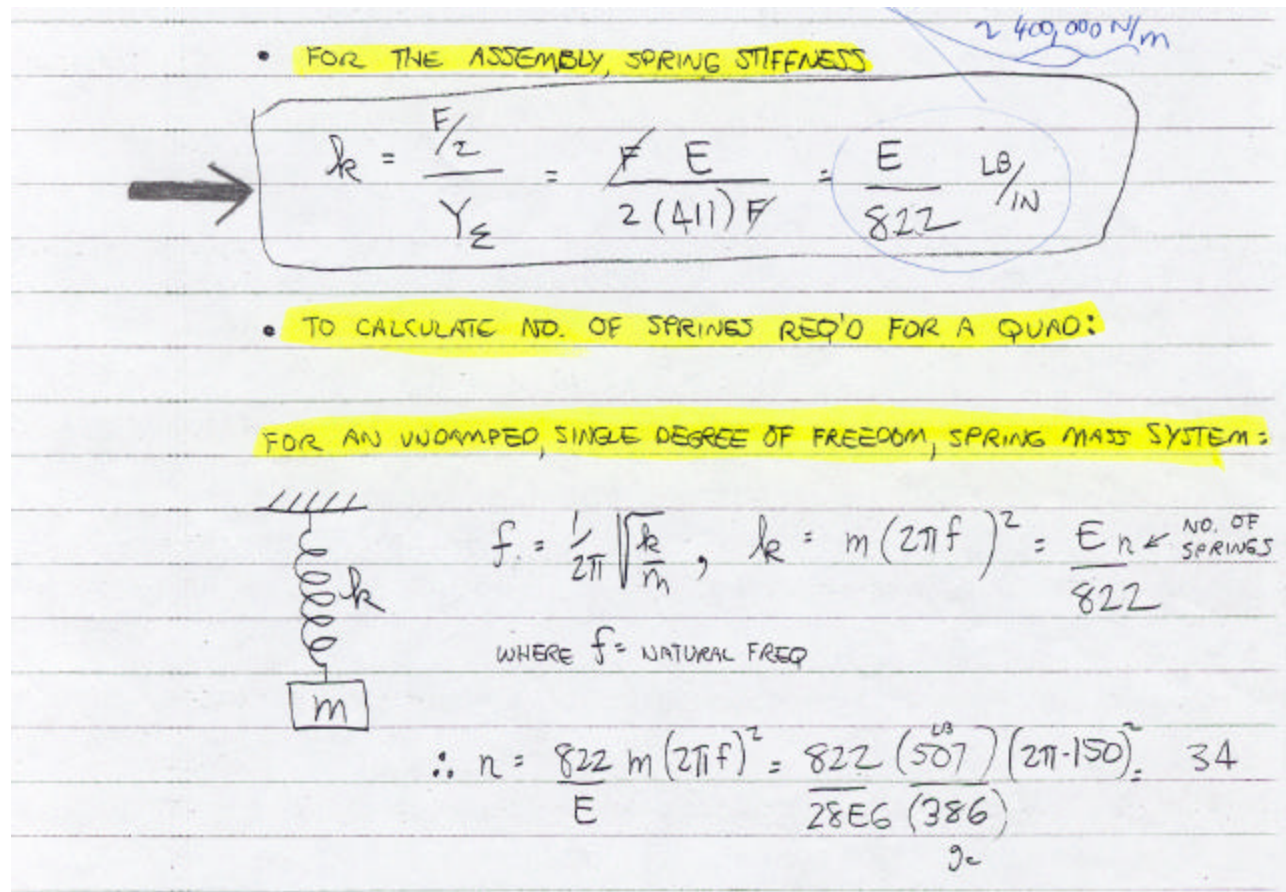 ~ 400,000 N/m
• FOR THE ASSEMBLY, SPRING STIFFNESS
k = F/2 / Yε = F E / 2 (411) F = E / 822 LB/IN
• TO CALCULATE NO. OF SPRINGS REQ'D FOR A QUAD:
FOR AN UNDAMPED, SINGLE DEGREE OF FREEDOM, SPRING MASS SYSTEM:
f = 1/2π √k/m , k = m (2πf)² = E n / 822 ← NO. OF SPRINGS
k
WHERE f = NATURAL FREQ
m
∴ n = 822/E m (2πf)² = 822/28E6 (507 LB)/(386) (2π·150)² = 34
gc